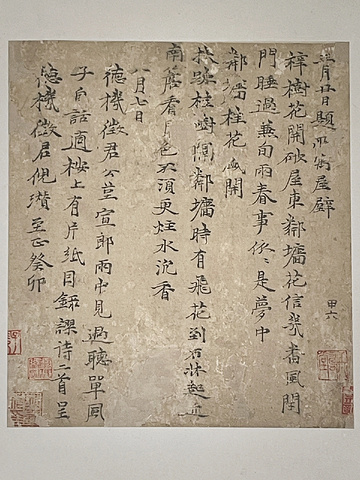 三月廿日題所寓屋壁
梓樹花開破屋東鄰墻花信幾番風閉
門睡過兼旬雨春事依依是夢中
鄰墻桂花盛開
扶踈桂樹隔鄰墻時有飛花到石牀起近
南簷看月色不須更炷水沉香
八月七日
德機徵君公荳宣郎雨中見過聽單
子白話適桉上有片紙因錄謬詩二首呈
德機徵君倪瓚至正癸卯
甲六